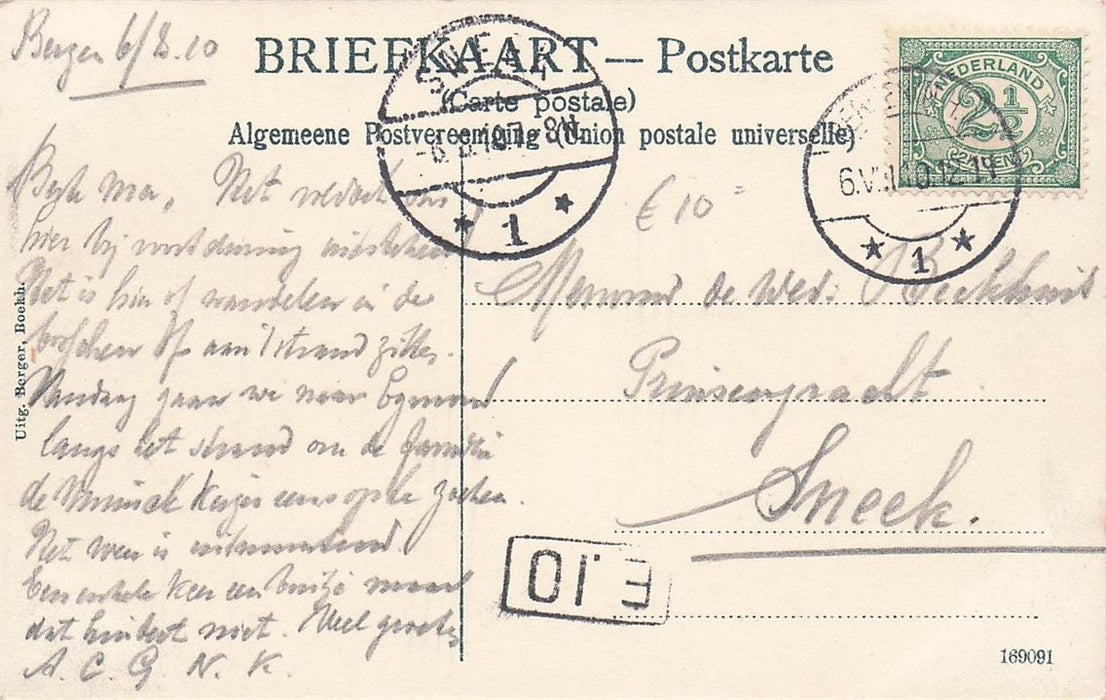 Bergen 6/8.10
BRIEFKAART — Postkarte
(Carte postale)
Algemeene Postvereeniging (Union postale universelle)
SNEEK
8N
1
NEDERLAND
2½
CENT
BERGEN
1
£ 10
Beste Ma, Het
hier bij voortduring
Het is hier of wandelen in de
bosschen of aan 't strand zitten.
Vandaag gaan we naar Egmond
langs het strand om de familie
de eens op te zoeken.
Het weer is
Een enkele keer een buitje maar
dat hindert niet. Veel groeten
A. C. G. N. K.
Mevrouw de Wed. Beekhuis
Prinsengracht
Sneek.
E.10
Uitg. Berger, Boekh.
169091